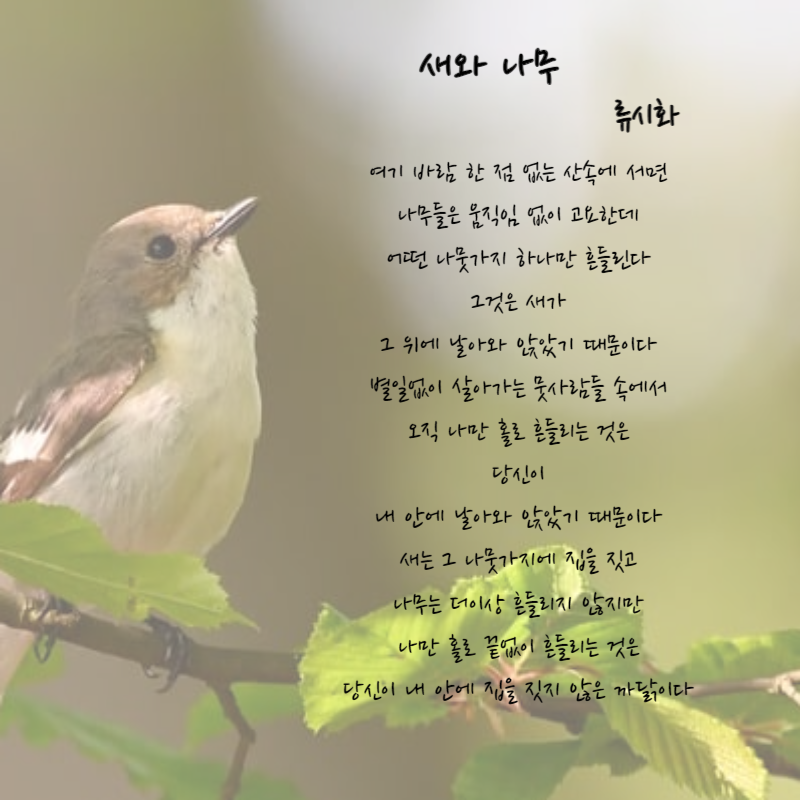 새와 나무
류시화
여기 바람 한 점 없는 산속에 서면
나무들은 움직임 없이 고요한데
어떤 나뭇가지 하나만 흔들린다
그것은 새가
그 위에 날아와 앉았기 때문이다
별일없이 살아가는 뭇사람들 속에서
오직 나만 홀로 흔들리는 것은
당신이
내 안에 날아와 앉았기 때문이다
새는 그 나뭇가지에 집을 짓고
나무는 더이상 흔들리지 않지만
나만 홀로 끝없이 흔들리는 것은
당신이 내 안에 집을 짓지 않은 까닭이다